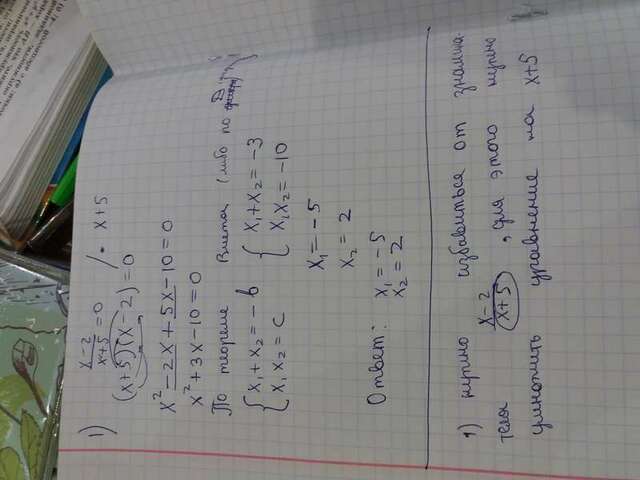 1) x-2/x+5 = 0 /· x+5
(x+5)(x-2)=0
x²-2x+5x-10=0
x²+3x-10=0
По теореме Виета (либо по D
{ x₁+x₂=-b { x₁+x₂=-3
{ x₁x₂=c { x₁x₂=-10
x₁=-5
x₂=2
Ответ: x₁=-5
x₂=2
1) нужно избавиться от знамина-
теля x-2/x+5, для этого нужно
умножить уравнение на x+5